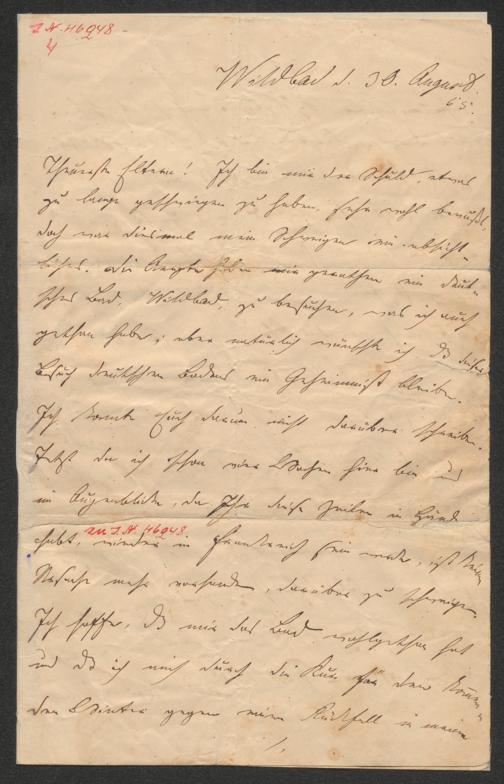 I. N. 46948
4
Wildbad d. 30. August
65.
Theuerste Eltern! Ich bin mir der Schuld, etwas
zu lange geschwiegen zu haben, sehr wohl bewußt,
doch war diesmal mein Schweigen ein absicht-
liches. Die Aerzte haben mir gerathen ein deut-
sches Bad, Wildbad, zu besuchen, was ich auch
gethan habe; aber natürlich wünschte ich daß dieser
Besuch deutschen Bodens ein Geheimniß bleibe.
Ich konnte Euch darum nicht darüber schreiben.
Jetzt da ich schon vier Wochen hier bin und
im Augenblicke, da Ihr diese Zeilen in Händ
habt, wieder in Frankreich sein werde, ist keine
zu I. N. 46948
Ursache mehr vorhanden, darüber zu schweigen.
Ich hoffe, daß mir das Bad wohlgethan hat
und daß ich mich durch die Kur für den kommen-
den Winter gegen einen Rückfall in meine
/.